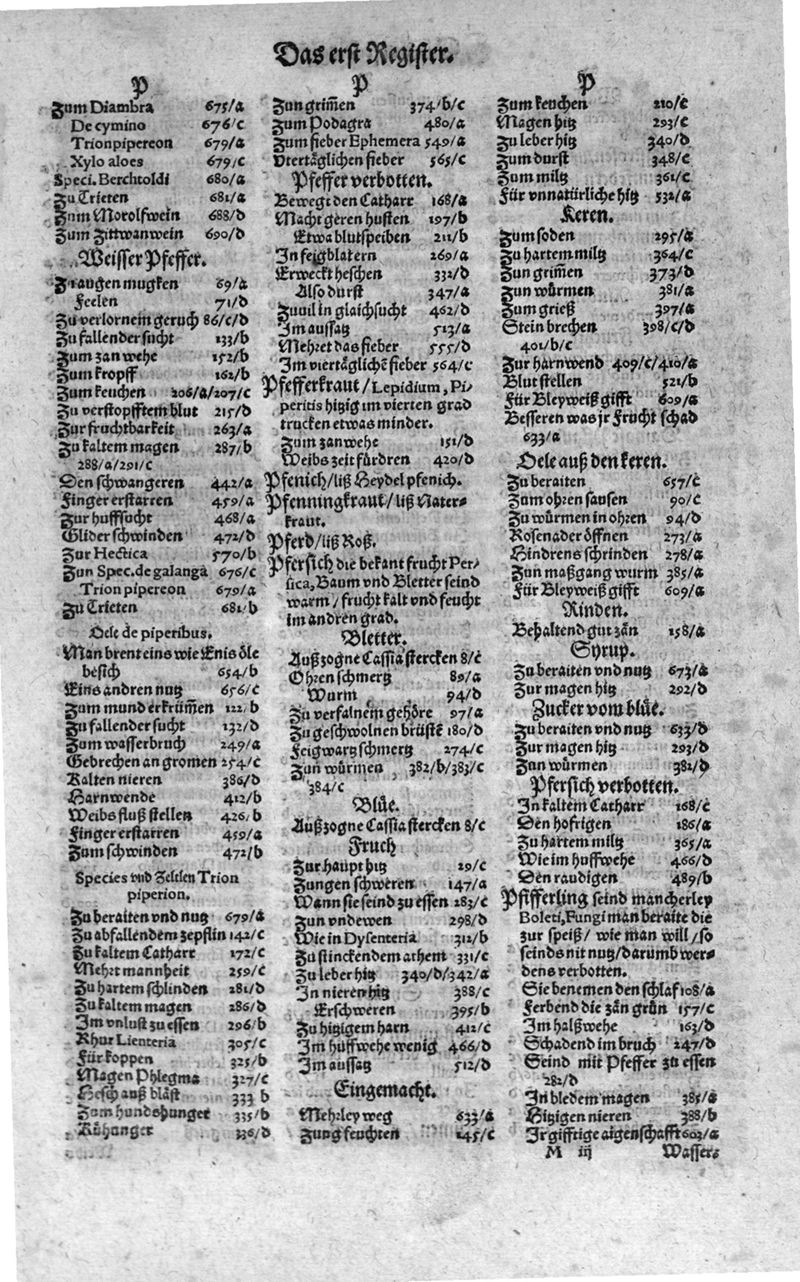 Das erst Register.
P
Zum Diambra 675/a
De cymino 676/c
Trionpipereon 679/a
Xylo aloes 679/c
Speci. Berchtoldi 680/a
Zu Trieten 681/a
Zum Morolfwein 688/d
Zum Zittwanwein 690/d
Weisser Pfeffer.
Zu augen mugken 69/a
Feelen 71/d
Zu verlornem geruch 86/c/d
Zu fallender sucht 133/b
Zum zan wehe 152/b
Zum kropff 162/b
Zum keuchen 206/a/207/c
Zu verstopfftem blut 215/d
Zur fruchtbarkeit 263/a
Zu kaltem magen 287/b
288/a/291/c
Den schwangeren 442/a
Finger erstarren 459/a
Zur huffsucht 468/a
Glider schwinden 472/d
Zur Hectica 570/b
Zun Spec. de galanga 676/c
Trion pipereon 679/a
Zu Trieten 681/b
Oele de piperibus.
Man brent eins wie Enis öle
besich 654/b
Eins andren nutz 656/c
Zum mund erkrüm̃en 122/b
Zu fallender sucht 132/d
Zum wasserbruch 249/a
Gebrechen an gromen 254/c
Kalten nieren 386/d
Harnwende 412/b
Weibs fluß stellen 426/b
Finger erstarren 459/a
Zum schwinden 472/b
Species vnd Zeltlen Trion
piperion.
Zu beraiten vnd nutz 679/a
Zu abfallendem zepflin 142/c
Zu kaltem Catharr 172/c
Mehrt mannheit 259/c
Zu hartem schlinden 281/d
Zu kaltem magen 286/d
Im vnlust zu essen 296/b
Rhur Lienteria 305/c
Für koppen 325/b
Magen Phlegma 327/c
Hesch auß bläst 333 b
Zum hundshunger 335/b
Kühunger 336/d
P
Zun grim̃en 374/b/c
Zum Podagra 480/a
Zum fieber Ephemera 549/a
Viertäglichen fieber 565/c
Pfeffer verbotten.
Bewegt den Catharr 168/a
Macht geren husten 197/b
Etwa blutspeiben 211/b
In feigblatern 269/a
Erweckt heschen 332/d
Also durst 347/a
Zuuil in glaichsucht 462/d
Im aussatz 513/a
Mehret das fieber 555/d
Im viertäglichẽ fieber 564/c
Pfefferkraut/Lepidium, Pi-
peritis hitzig im vierten grad
trucken etwas minder.
Zum zanwehe 151/d
Weibs zeit fürdren 420/d
Pfenich/liß Heydel pfenich.
Pfenningkraut/liß Nater-
kraut.
Pferd/liß Roß.
Pfersich die bekant frucht Per-
sica, Baum vnd Bletter seind
warm/frucht kalt vnd feucht
im andren grad.
Bletter.
Außzogne Cassia stercken 8/c
Ohren schmertz 89/a
Wurm 94/d
Zu verfalnem gehöre 97/a
Zu geschwolnen brüstẽ 180/d
Feigwartz schmertz 274/c
Zun würmen 382/b/383/c
384/c
Blüe.
Außzogne Cassia stercken 8/c
Fruch
Zur haupt hitz 29/c
Zungen schweren 147/a
Wann sie seind zu essen 283/c
Zun vndewen 298/d
Wie in Dysenteria 312/b
Zu stinckendem athem 331/c
Zu leber hitz 340/d/342/a
In nieren hitz 388/c
Erschweren 395/b
Zu hitzigem harn 412/c
Im hüffwehe wenig 466/d
Im aussatz 512/d
Eingemacht.
Mehrley weg 633/a
Zung feuchten 145/c
P
Zum keuchen 210/c
Magen hitz 293/c
Zu leber hitz 340/d
Zum durst 348/c
Zum miltz 361/c
Für vnnatürliche hitz 532/a
Keren.
Zum soden 295/a
Zu hartem miltz 364/c
Zun grim̃en 373/d
Zun würmen 381/a
Zum grieß 397/a
Stein brechen 398/c/d
401/b/c
Zur harnwend 409/c/410/a
Blut stellen 521/b
Für Bleyweiß gifft 609/a
Besseren was jr Frucht schad
633/a
Oele auß den keren.
Zu beraiten 657/c
Zum ohren sausen 90/c
Zu würmen in ohren 94/d
Rosenader öffnen 273/a
Hindrens schrinden 278/a
Zun maßgang wurm 385/a
Für Bleyweiß gifft 609/a
Rinden.
Behaltend gut zän 158/a
Syrup.
Zu beraiten vnd nutz 673/a
Zur magen hitz 292/d
Zucker vom blüe.
Zu beraiten vnd nutz 633/d
Zur magen hitz 293/d
Zun würmen 382/d
Pfersich verbotten.
In kaltem Catharr 168/c
Den hofrigen 186/a
Zu hartem miltz 365/a
Wie im huffwehe 466/d
Den raudigen 489/b
Pfifferling seind mancherley
Boleti, Fungi man beraite die
zur speiß/wie man will/so
seinds nit nutz/darumb wer-
dens verbotten.
Sie benemen den schlaf 108/a
Ferbend die zän grün 157/c
Im halßwehe 163/d
Schadend im bruch 247/d
Seind mit Pfeffer zu essen
282/d
In bledem magen 385/a
Hitzigen nieren 388/b
Ir gifftige aigenschafft 603/a
M iij
Wasser-